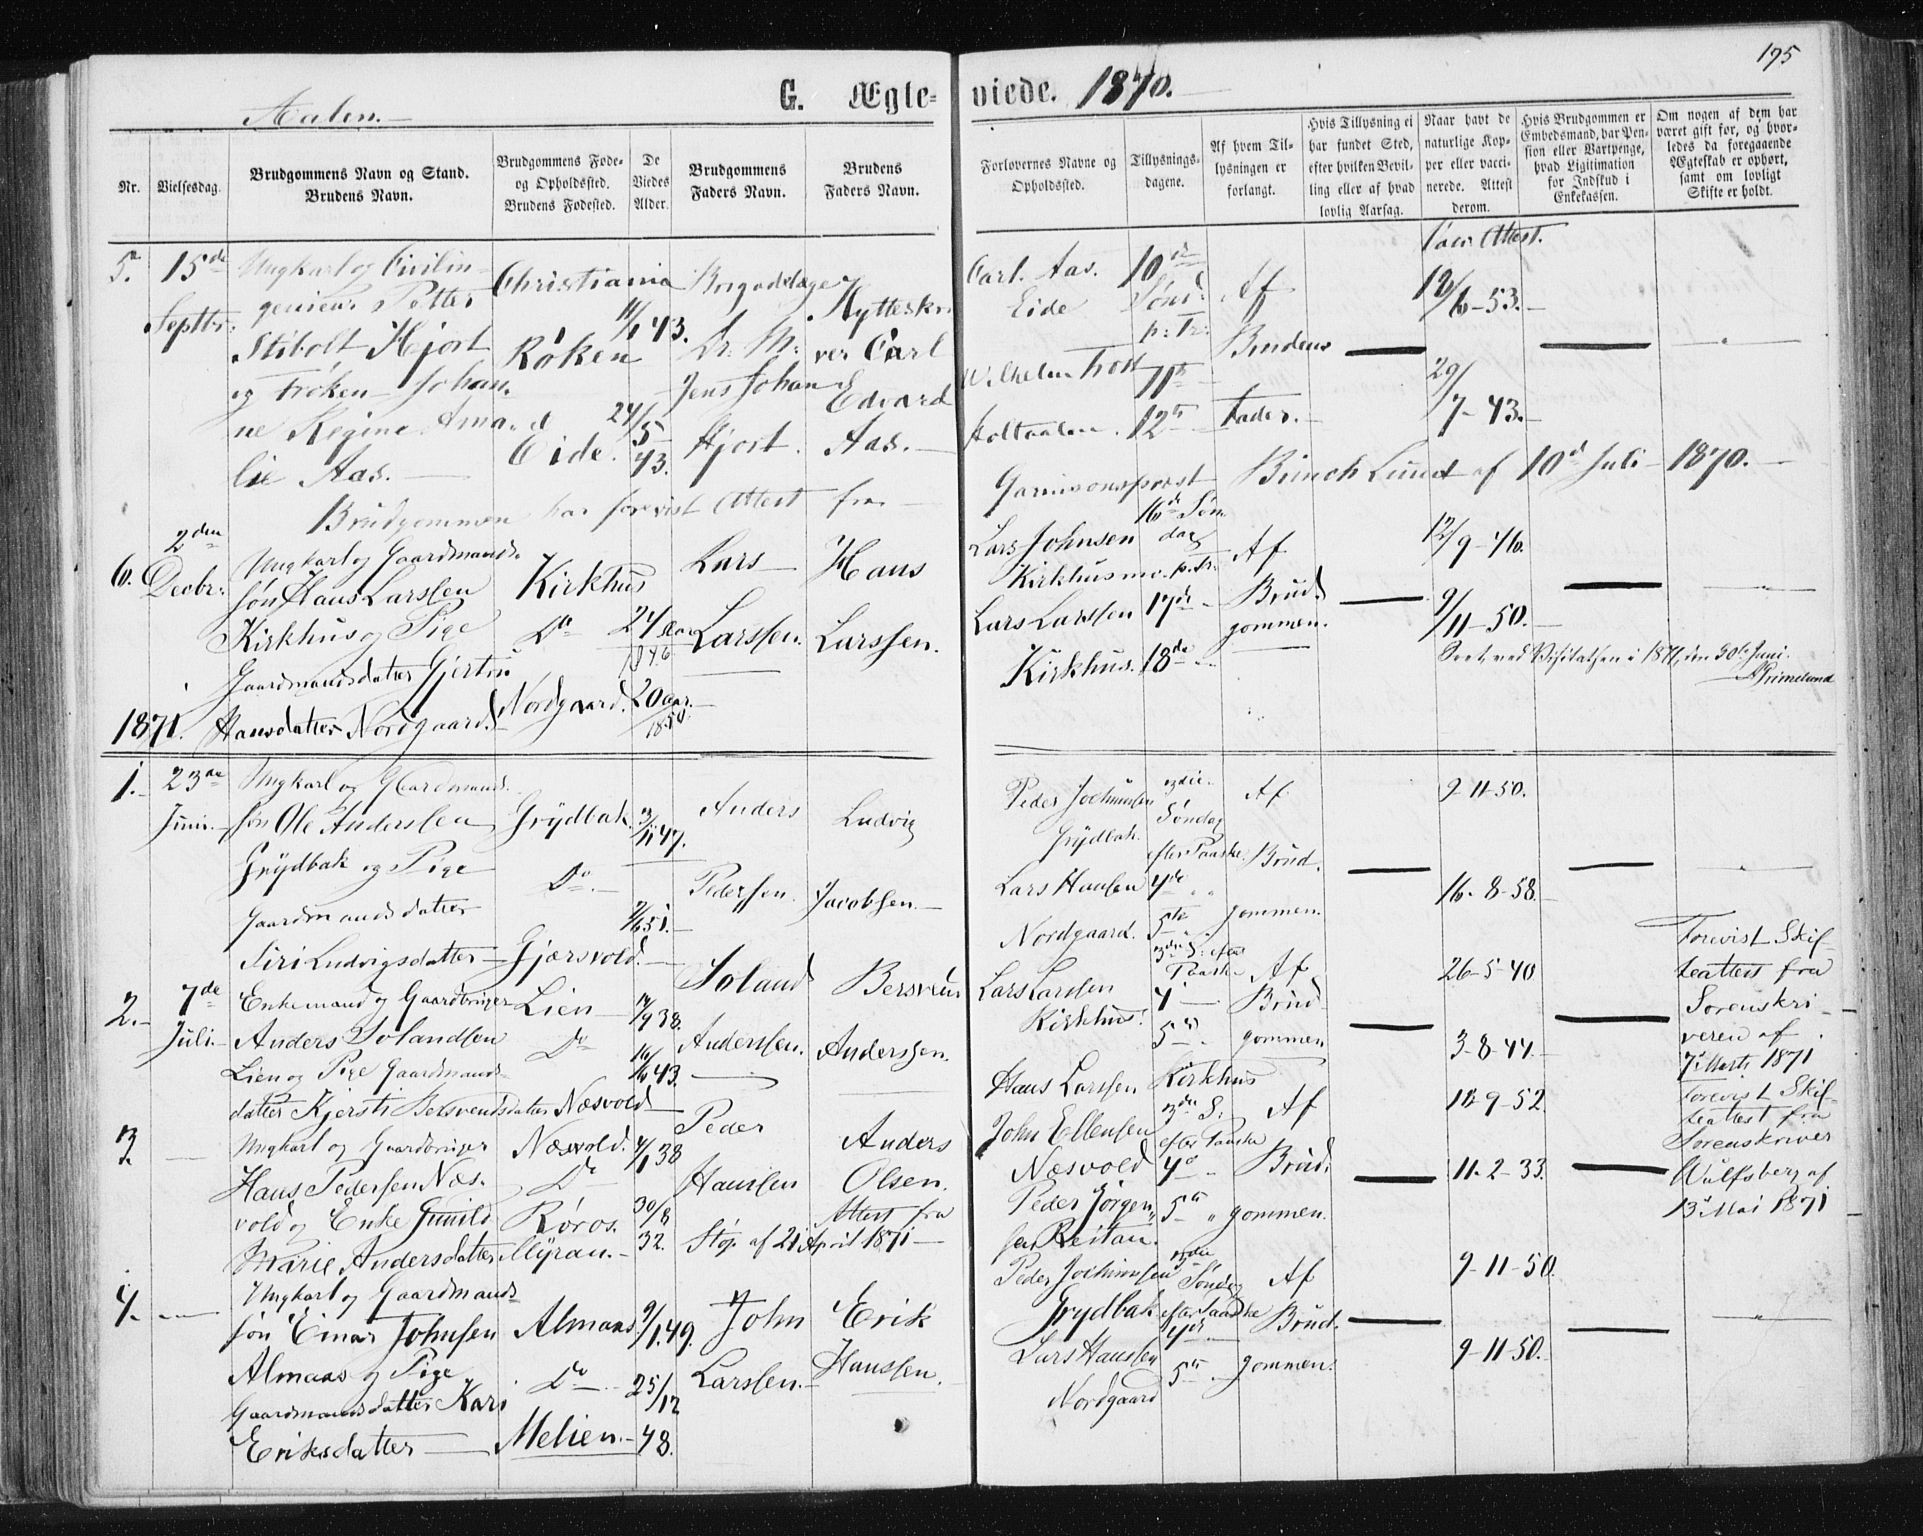 195
G. Ægte= viede. 1870.
Aalen.
Nr.
Vielsesdag.
Brudgommens Navn og Stand.
Brudens Navn.
Brudgommens Føde-
og Opholdssted.
Brudens Fødested.
De
Viedes
Alder.
Brudgommens
Faders Navn.
Brudens
Faders Navn.
Forlovernes Navne og
Opholdssted.
Tillysnings-
dagene.
Af hvem Til-
lysningen er
forlangt.
Hvis Tillysning ei
har fundet Sted,
efter hvilken Bevil-
ling eller af hvad
lovlig Aarsag.
Naar havt de
naturlige Kop-
per eller vacci-
nerede. Attest
derom.
Hvis Brudgommen er
Embedsmand, har Pen-
sion eller Vartpenge,
hvad Ligitimation
for Indskud i
Enkekassen.
Om nogen af dem har
været gift før, og hvor-
ledes da foregaaende
Ægteskab er ophørt,
samt om lovligt
Skifte er holdt.
5.
15de
Septbr.
Ungkarl og Civilin-
genieur Petter
Stibolt Hjort
og Frøken Johan-
ne Regine Ama-
lie Aas.
Christiania
Røken
Eide.
11/1 43.
24/5 43.
Dr. M:
Jens Johan
Hjort.
Hytteskri
ver Carl
Edvard
Aas.
Carl. Aas.
Eide
Wilhelm
Holtaalen.
10de
Sønd:
p: Tr:
11te
12te
Af
Brudens
Fader.
Vacc. Attest.
12/6-53.
29/7-43.
Brudgommen har forevist Attest fra Garnisonsprest Bunch Lund af 10de Juli 1870.
6.
2den
Decbr:
Ungkarl og Gaardmands-
søn Hans Larssen
Kirkhus og Pige
Gaardmandsdatter Gjertru
Hansdatter Nordgaard.
Kirkhus
Do
Nordgaard.
24 Aar
1846
20 aar.
1850.
Lars
Larssen.
Hans
Larssen.
Lars Johnsen
Kirkhusmo.
Lars Larssen
Kirkhus.
16de Søn
dag
p. Tr.
17de
18de
Af
Brud-
gommen.
12/9-46.
9/11-50.
Seet ved Visitatsen i 1871, den 30te Juni.
Grimelund
1871.
1.
23de
Juni.
Ungkarl og Gaardmands-
søn Ole Anderssen
Grydbak og Pige
Gaardmandsdatter
Siri Ludvigsdatter
Grydbak.
Do
Gjærsvold.
3/11 47.
7/6 51.
Anders
Pederssen.
Ludvig
Jacobsen.
Peder Jochumsen
Grydbak.
Lars Hansen
Nordgaard.
3die
Søndag
efter Paaske.
4de
5te
Af
Brud-
gommen.
9-11-50.
16-8-58.
2.
7de
Juli.
Enkemand og Gaardbruger
Anders Iolandsen
Lien og Pige Gaardmands-
datter Kjersti Bersvendsdatter Næsvold
Lien
Do
Ioland
Anderssen.
Bersven
Anderssen.
Lars Larssen
Kirkhus.
Hans Larssen Kirkhus
3die S: efter
Paaske
4
5te
Af
Brud-
gommen
26-5-40
3-8-44.
Forevist Skif-
teattest fra
Sorenskri-
veren af
7de Marts 1871
3.
Ungkarl og Gaardbruger
Hans Pedersen Næs-
vold og Enke Gunild
Marie Andersdatter
Næsvold.
Do
Røros.
Myran.
4/1 38
30/8 32.
Peder
Hanssen
Anders
Olsen.
Attest fra
Stp. af 21 April 1871
John Ellensen
Næsvold
Peder Jørgen-
sen Reitan.
3die S:
efter Paaske
4de
5te
Af
Brud-
gommen.
18-9-52.
11-2-33.
Forevist Skif-
teattest fra
Sorenskriver
Wulfsberg af
13de Mai 1871
4.
Ungkarl og Gaardmands-
søn Einar Johnsen
Almaas og Pige
Gaardmandsdatter Kari
Eriksdatter
Almaas
Do
Melien.
9/1.49.
25/12
48.
John
Larssen.
Erik
Hanssen.
Peder Jochumsen
Grydbak
Lars Hanssen
Nordgaard
3die
Søndag
efter Paaske
4de
5te
Af
Brud-
gommen.
9-11-50.
9-11-50.